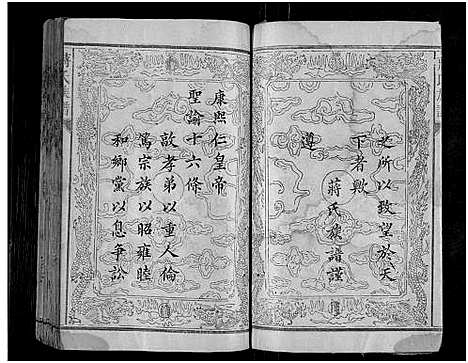 交所以致望於天
下者歟
蔣氏族譜謹
遵
康熙仁皇帝
聖諭十六條
敦孝弟以重人倫
篤宗族以昭雍睦
和鄉黨以息爭訟